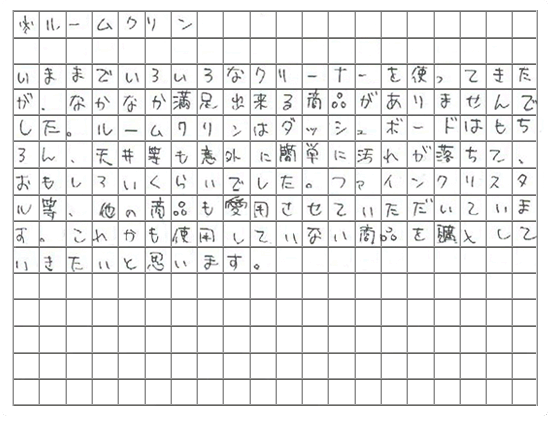 ※ルームクリン
いままでいろいろなクリーナーを使ってきた
が、なかなか満足出来る商品がありませんで
した。ルームクリンはダッシュボードはもち
ろん、天井等も意外に簡単に汚れが落ちて、
おもしろいくらいでした。ファインクリスタ
ル等、他の商品も愛用させていただいていま
す。これからも使用していない商品を購入して
いきたいと思います。